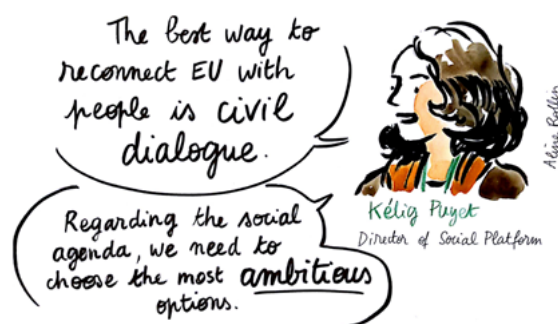 The best way to
reconnect EU with
people is civil
dialogue.
Regarding the social
agenda, we need to
choose the most ambitious
options.
Kélig Puyet
Director of Social Platform
Aline Rollin